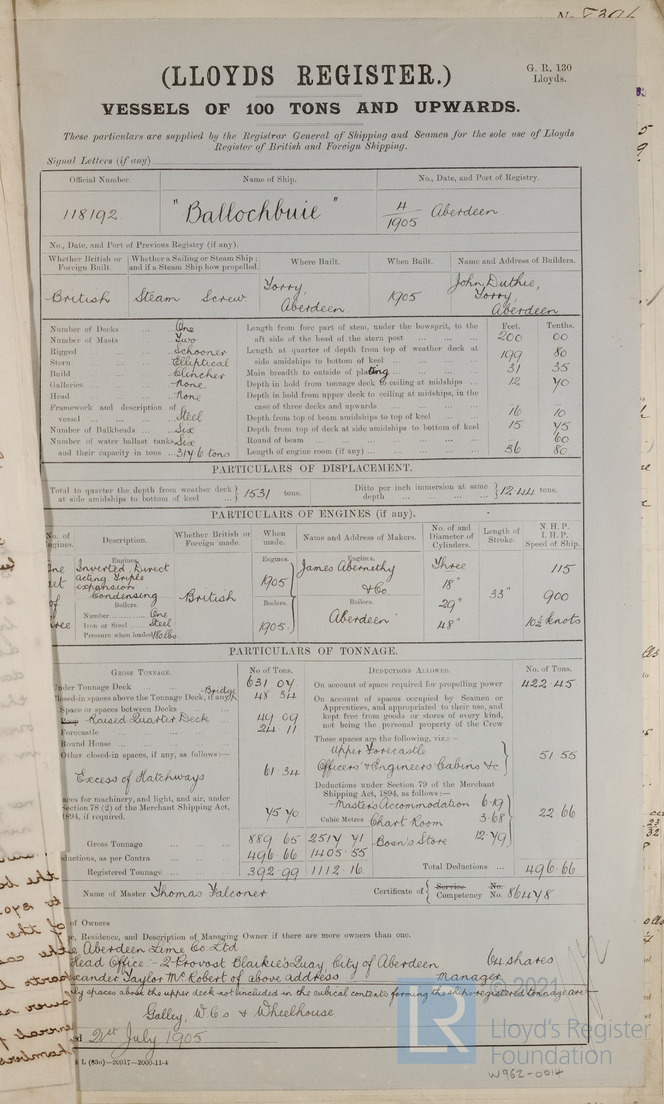 No 5306
(LLOYDS REGISTER.)
G. R. 130
Lloyds.
VESSELS OF 100 TONS AND UPWARDS.
These particulars are supplied by the Registrar General of Shipping and Seamen for the sole use of Lloyds
Register of British and Foreign Shipping.
Signal Letters (if any)
Official Number. Name of Ship. No., Date, and Port of Registry.
118192. "Ballochbuie" 4/1905 Aberdeen
No., Date, and Port of Previous Registry (if any).
Whether British or Foreign Built. Whether a Sailing or Steam Ship; and if a Steam Ship how propelled. Where Built. When Built. Name and Address of Builders.
British Steam Screw Torry, Aberdeen 1905 John Duthie, Torry, Aberdeen
Feet. Tenths.
Number of Decks One
Number of Masts Two
Rigged Schooner
Stern Elliptical
Build Clincher
Galleries None.
Head None
Framework and description of vessel Steel
Number of Bulkheads Six
Number of water ballast tanks Six
and their capacity in tons 317.6 tons
Length from fore part of stem, under the bowsprit, to the aft side of the head of the stern post 200 00
Length at quarter of depth from top of weather deck at side amidships to bottom of keel 199 80
Main breadth to outside of plating 31 35
Depth in hold from tonnage deck to ceiling at midships 12 70
Depth in hold from upper deck to ceiling at midships, in the case of three decks and upwards
Depth from top of beam amidships to top of keel 16 10
Depth from top of deck at side amidships to bottom of keel 15 75
Round of beam 60
Length of engine room (if any) 36 80
PARTICULARS OF DISPLACEMENT.
Total to quarter the depth from weather deck at side amidships to bottom of keel 1531 tons. Ditto per inch immersion at same depth 12.44 tons.
PARTICULARS OF ENGINES (if any).
No. of Engines. Description. Whether British or Foreign made. When made. Name and Address of Makers. No. of and Diameter of Cylinders. Length of Stroke. N. H. P. I. H. P. Speed of Ship.
Engines. Engines. Engines.
Inverted Direct acting Triple expansion Condensing
British 1905 James Abernethy & Co. Aberdeen
Three 18" 29" 48" 33" 115 900 10½ knots
Boilers. Boilers. Boilers.
Number One
Iron or Steel Steel 1905.
Pressure when loaded 180 lbs.
PARTICULARS OF TONNAGE.
GROSS TONNAGE. No of Tons. DEDUCTIONS ALLOWED. No. of Tons.
Under Tonnage Deck 631 07
Closed-in spaces above the Tonnage Deck, if any Bridge 48 34
Space or spaces between Decks
Poop Raised Quarter Deck 49 09
Forecastle 24 11
Round House
Other closed-in spaces, if any, as follows:—
Excess of Hatchways 61 34
spaces for machinery, and light, and air, under Section 78 (2) of the Merchant Shipping Act, 1894, if required. 75 70
Cubic Metres
Gross Tonnage 889 65 2517 71
Deductions, as per Contra 496 66 1405.55
Registered Tonnage 392.99 1112.16
On account of space required for propelling power 422.45
On account of spaces occupied by Seamen or Apprentices, and appropriated to their use, and kept free from goods or stores of every kind, not being the personal property of the Crew
These spaces are the following, viz.:—
Upper Forecastle
Officers' & Engineers' Cabins &c 51 55
Deductions under Section 79 of the Merchant Shipping Act, 1894, as follows:—
Master's Accommodation 6.19
Chart Room 3.68
Bosn's Store 12.79
22 66
Total Deductions 496.66
Name of Master Thomas Falconer Certificate of Service Competency No. No. 86478
of Owners
Residence, and Description of Managing Owner if there are more owners than one.
Aberdeen Lime Co. Ltd
Head Office - 2 Provost Blaikie's Quay City of Aberdeen 64 shares
Alexander Taylor McRobert of above address manager
any spaces above the upper deck not included in the cubical contents forming the ship's registered tonnage are-
Galley, W Cs & Wheelhouse
21st July 1905
L (83o)—20017—2000-11-4
© 2021
LR Lloyd's Register
Foundation
W962-0014